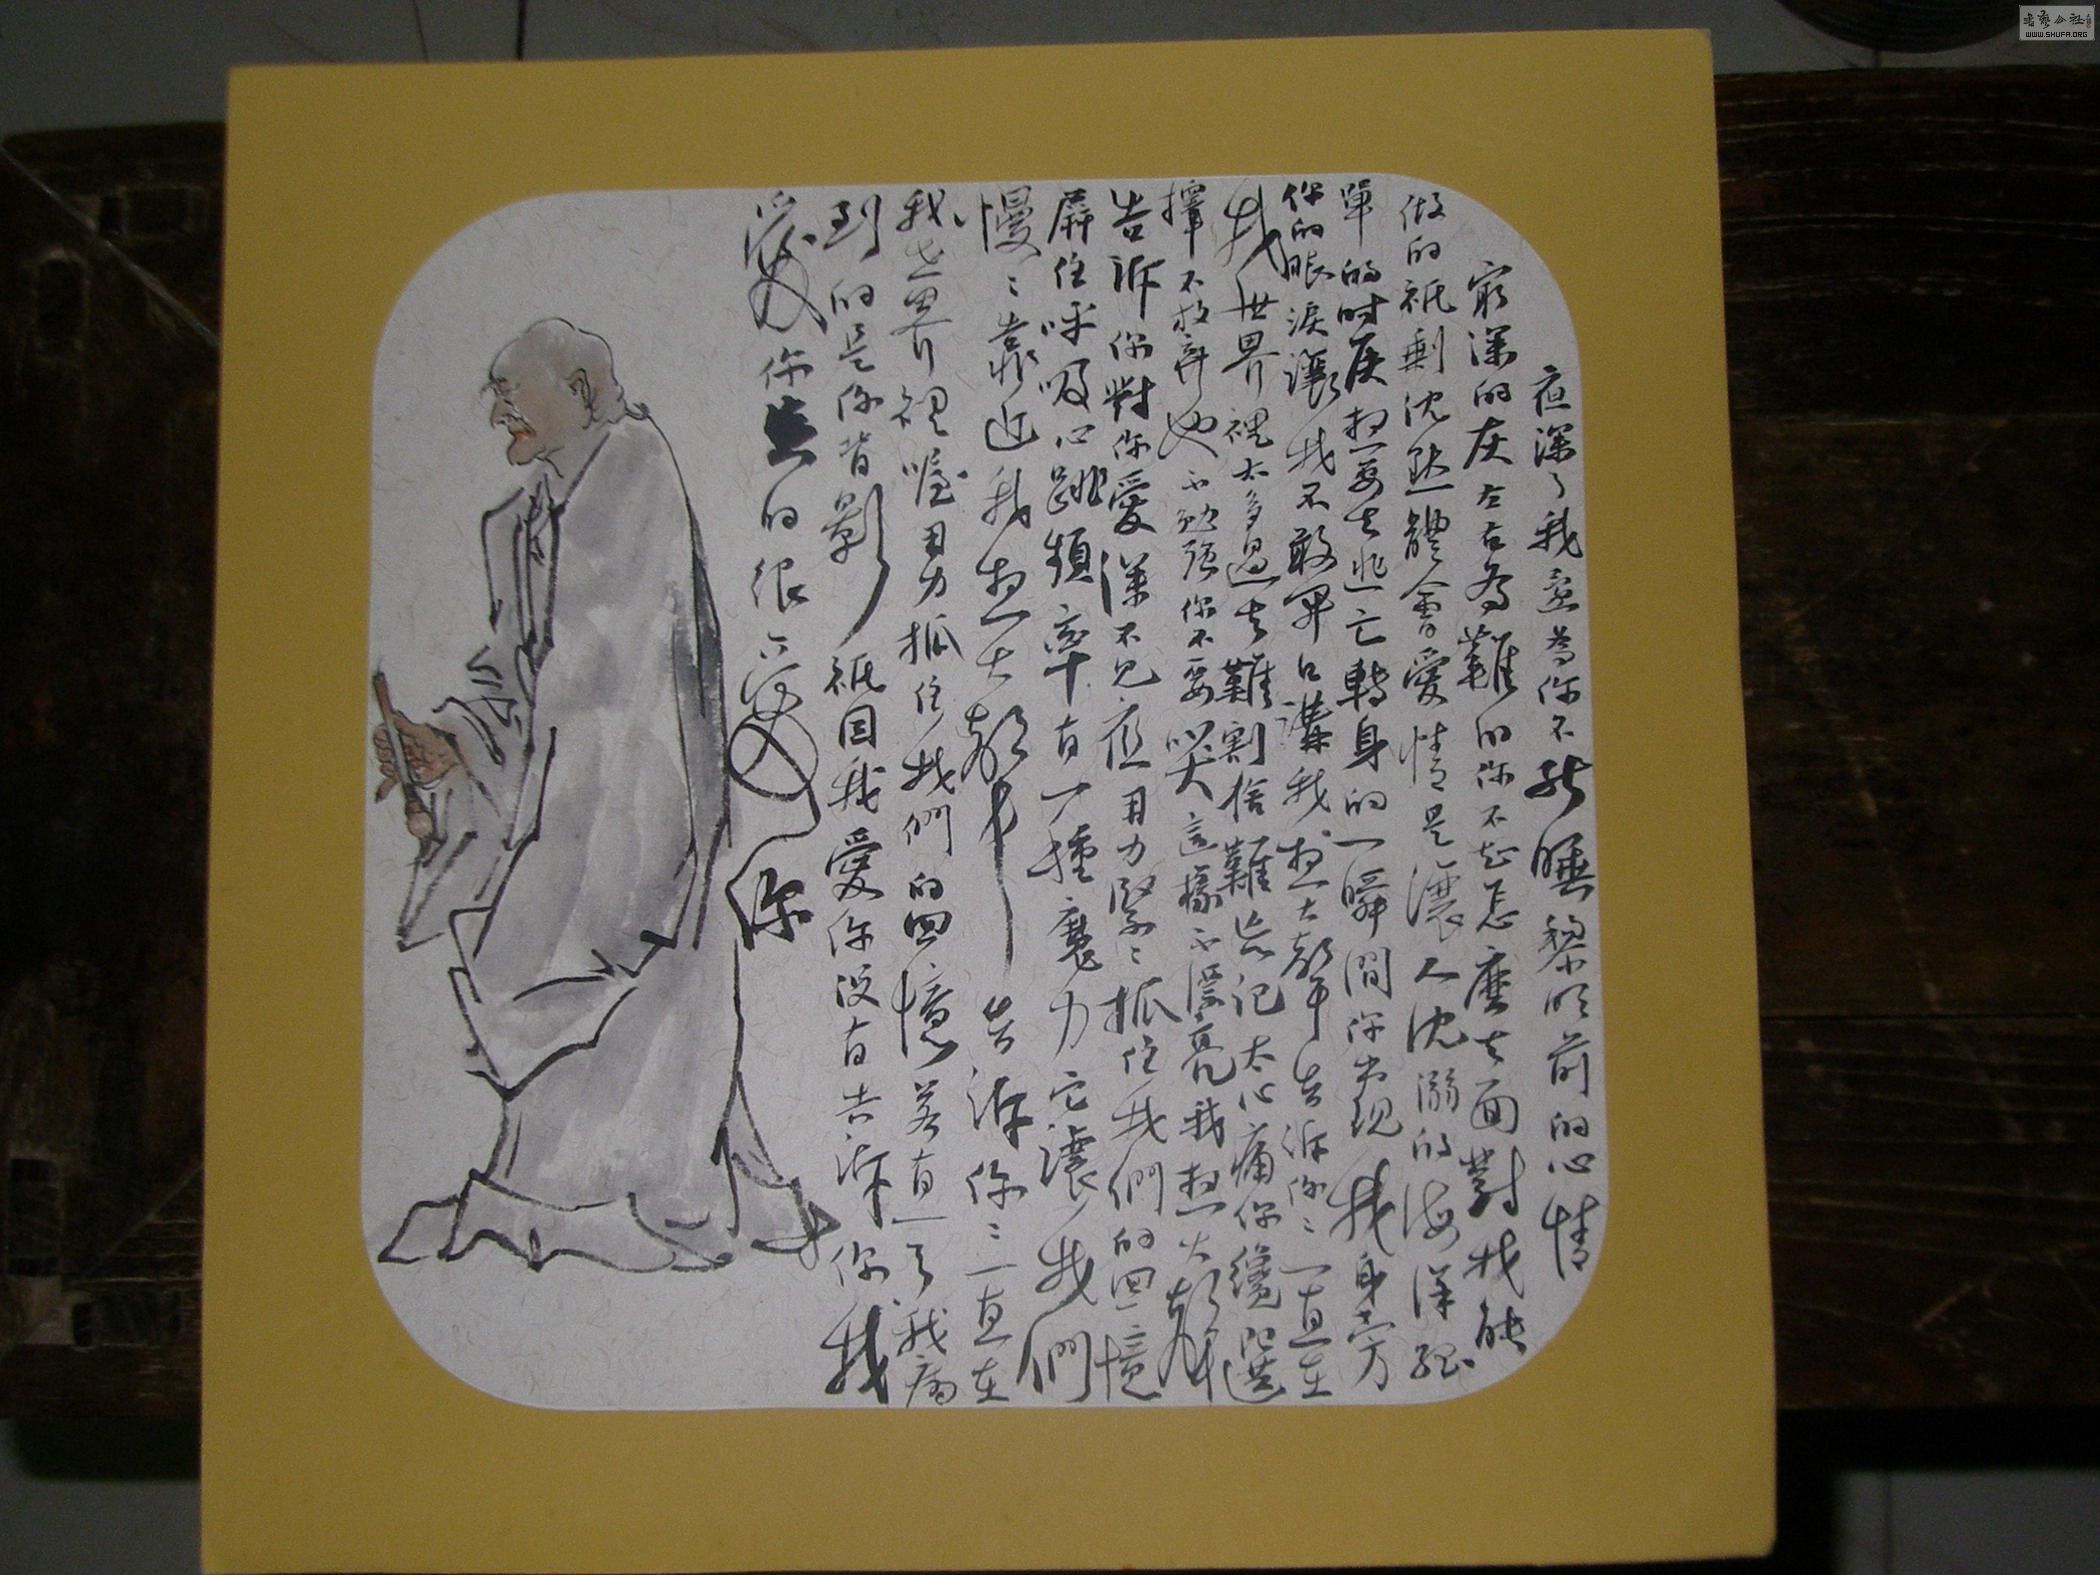 夜深了我還為你不能睡黎明前的心情
窮深的灰左右為難的你不知怎麼去面對我能
做的祇剩沈默體會愛情是讓人沈溺的海洋孤
單的时候想要去逃亡轉身的一瞬間你出現我身旁
你的眼淚讓我不敢開口講我想大聲告訴你〻一直在
我世界裡太多過去難割捨難忘記太心痛你纔選
擇不放弃也不勉强你不要哭這樣不漂亮我想大聲
告訴你對你愛深不見底用力緊〻抓住我們的回憶
屏住呼吸心跳頻率有一種魔力它讓我們
慢〻靠近我想大聲告訴你〻一直在
我世界裡喔用力抓住我們的回憶若有一天我病
到的是你背影祇因我愛你没有告訴你我
愛你真的很愛你
書藝公社
WWW.SHUFA.ORG